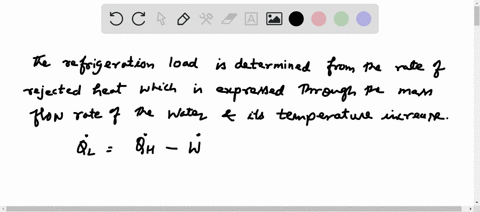 The refrigeration load is determined from the rate of
rejected heat which is expressed through the mass
flow rate of the water & its temperature increase.
Q̇L = Q̇H − Ẇ